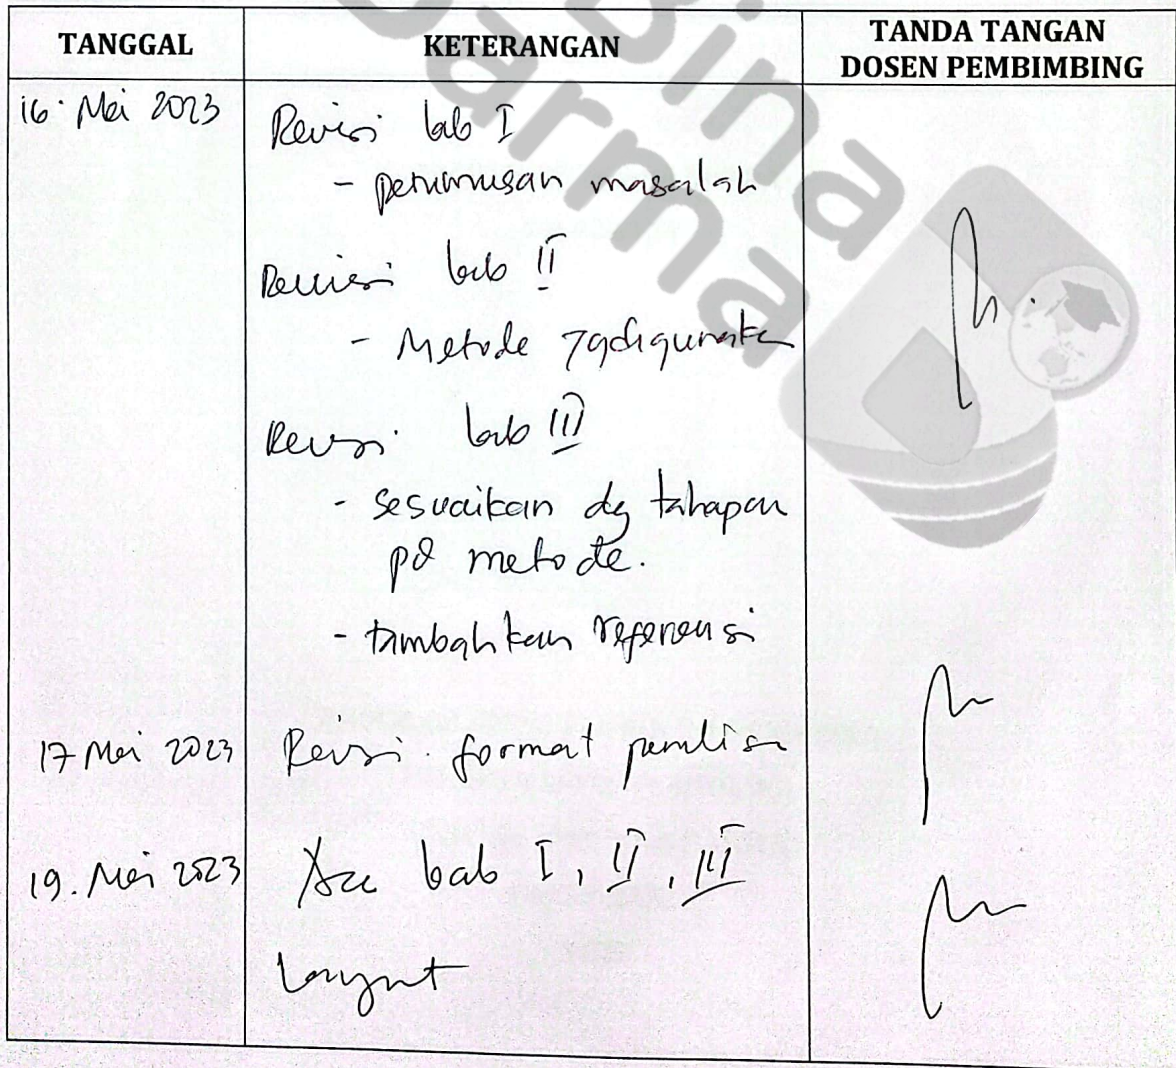 TANGGAL KETERANGAN TANDA TANGAN
DOSEN PEMBIMBING
16. Mei 2023 Revisi bab I
- perumusan masalah
Revisi bab II
- Metode yg digunakan
Revisi bab III
- sesuaikan dg tahapan
pd metode.
- tambahkan referensi
17 Mei 2023 Revisi format penulisan
19. Mei 2023 Acc bab I, II, III
Lanjut
Bina
Darma